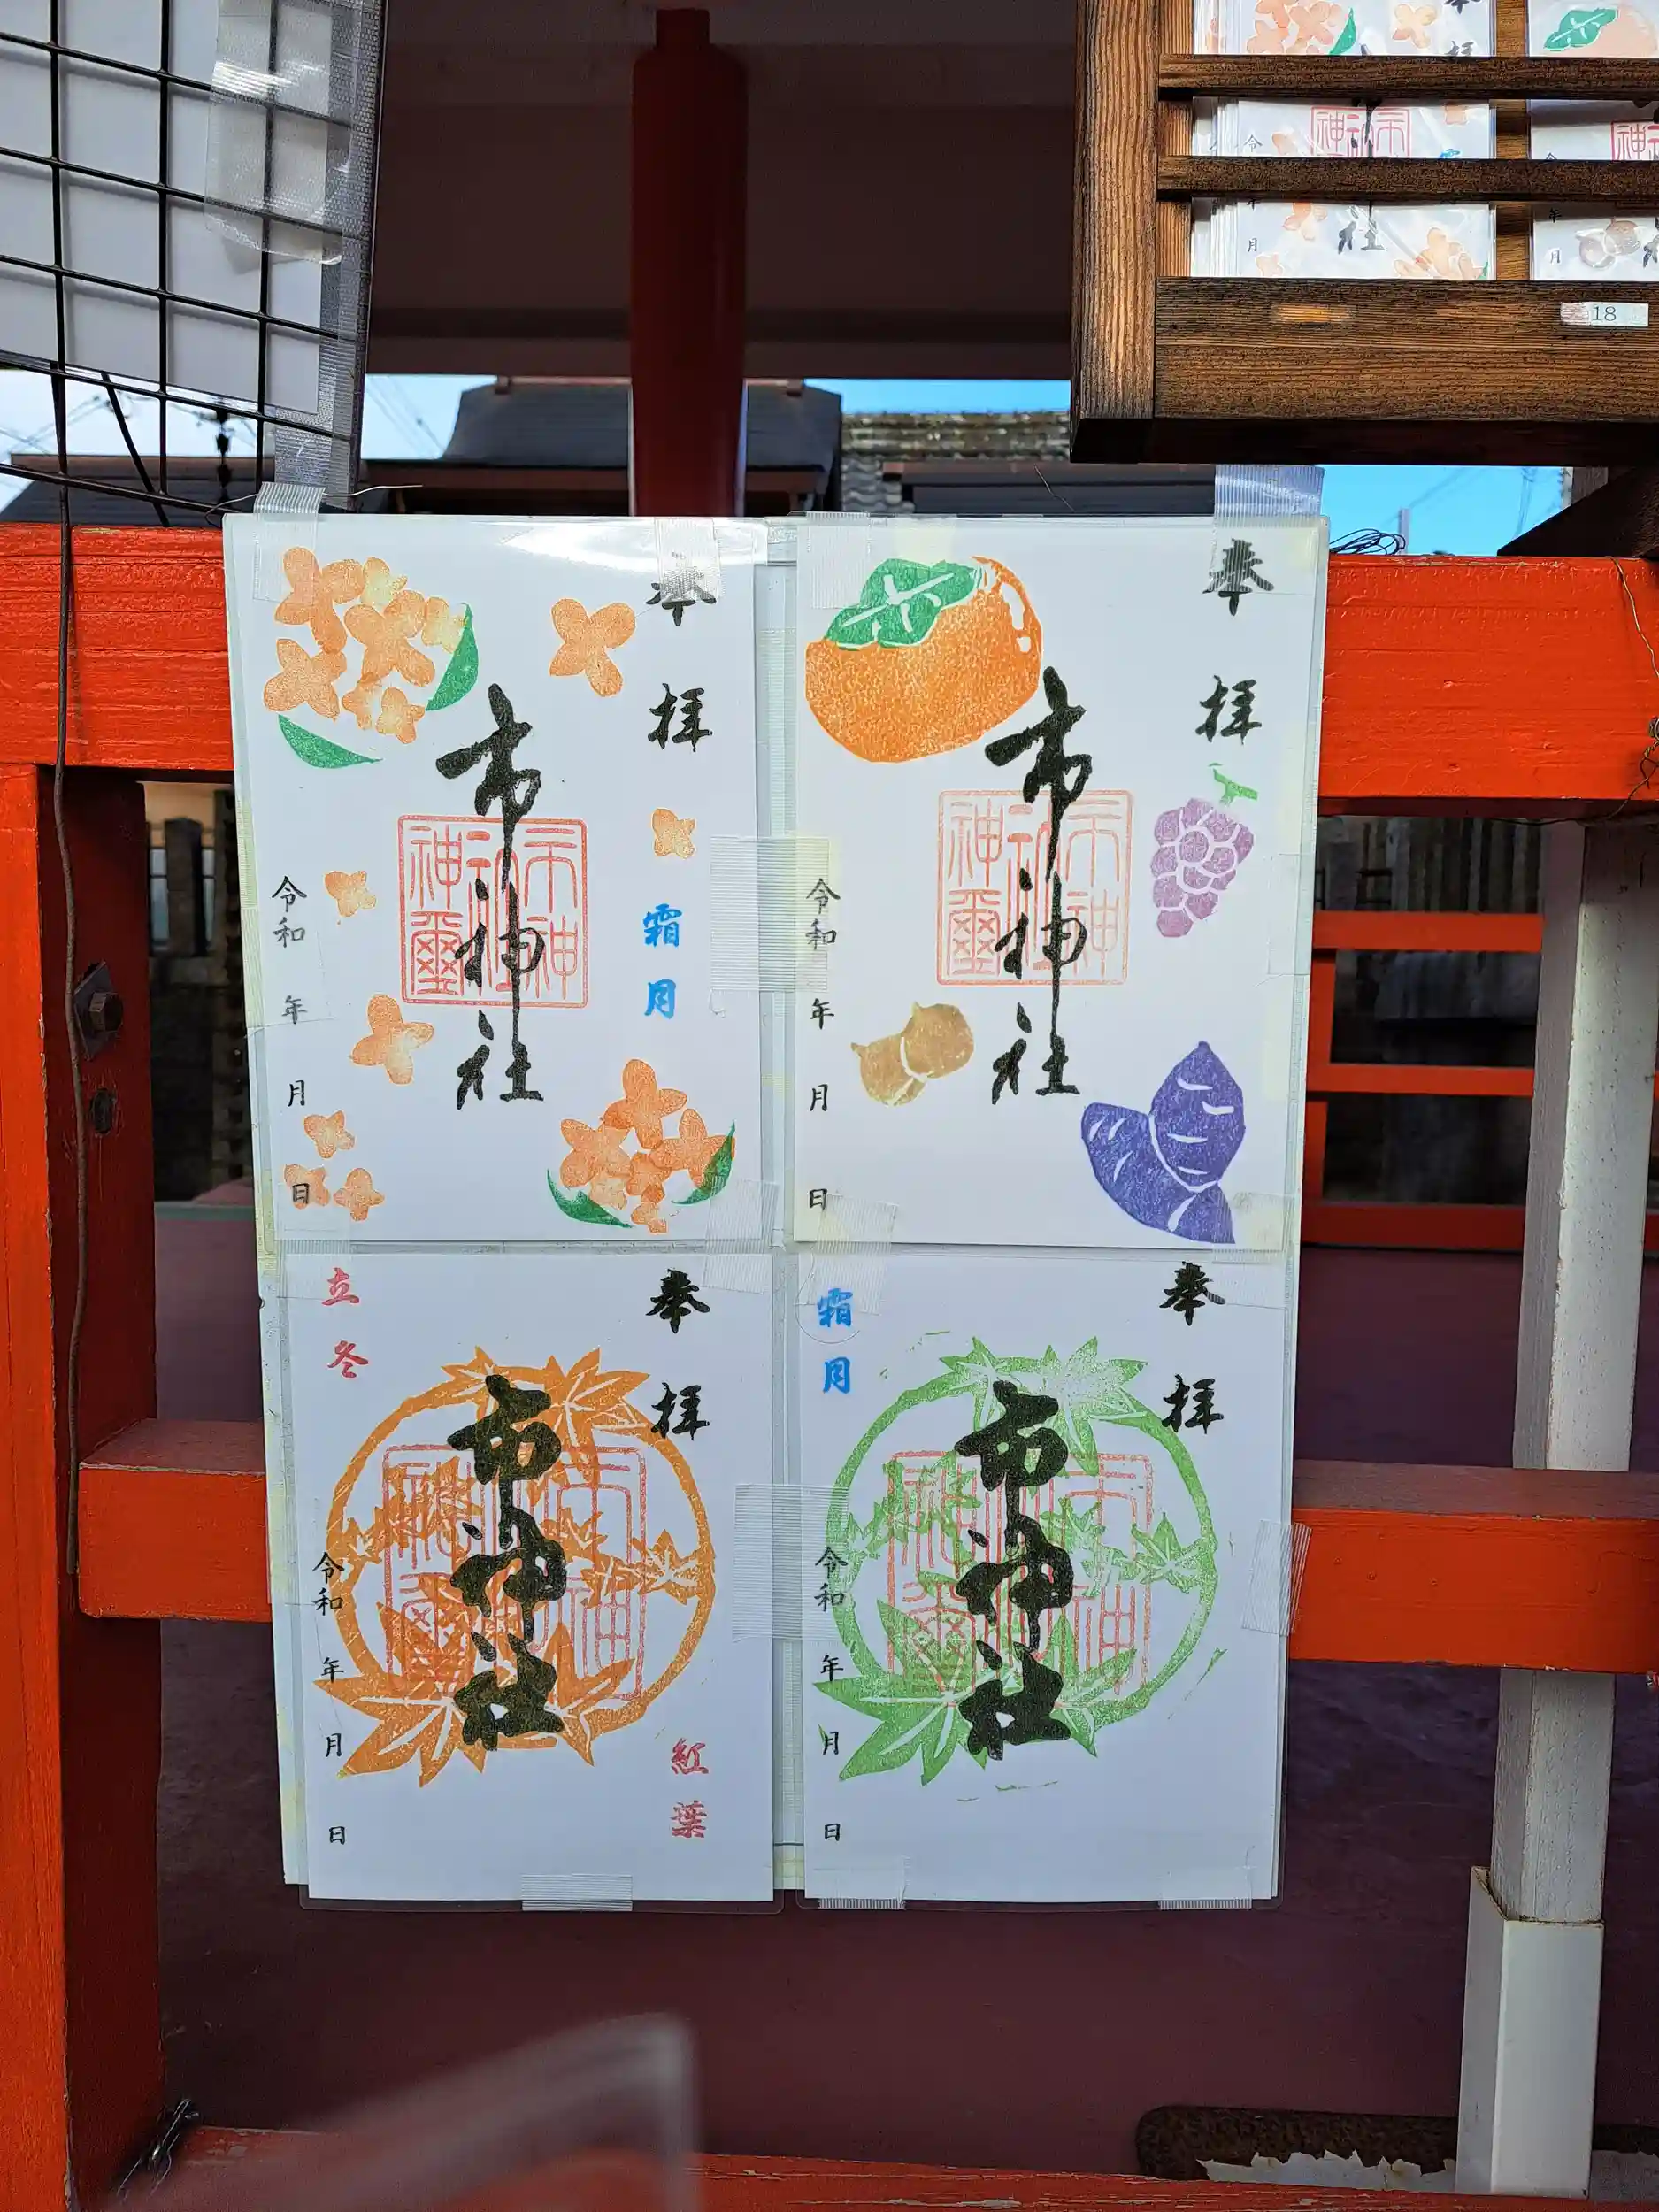 奉拝
市神社
市神社神璽
霜月
令和 年 月 日
奉拝
市神社
市神社神璽
令和 年 月 日
奉拝
立冬
市神社
市神社神璽
紅葉
令和 年 月 日
奉拝
霜月
市神社
市神社神璽
令和 年 月 日
18